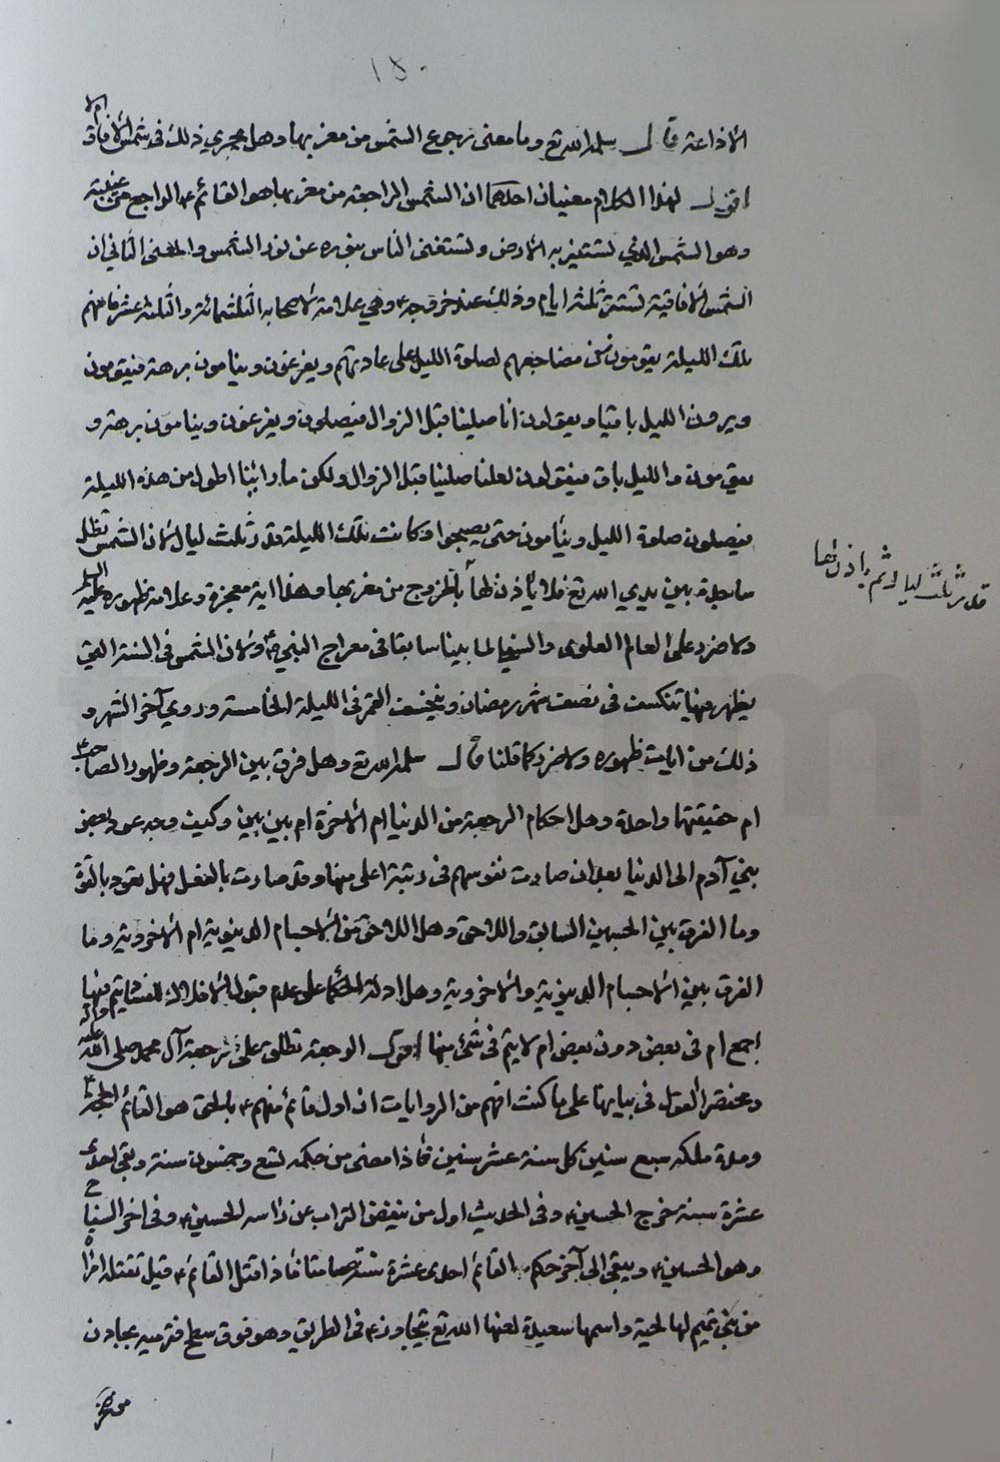 ١٥٠
الاذاعة قال سلمه الله تع وما معنى رجوع الشمس من مغربها وهل يجري ذلك في شمس الآفاق ام لا
اقول لهذا الكلام معنيان احدهما ان الشمس الراجعة من مغربها هو القائم ع الراجع من غيبته
وهو الشمس الذي تستنير به الارض وتستغني الناس بنوره عن نور الشمس والمعنى الثاني ان
الشمس الآفاقية تستتر ثلثة ايام وذلك عند خروجه ع وهي علامة لاصحابه الثلثمائة والثلثة عشر فانهم
تلك الليلة يقومون من مضاجعهم لصلوة الليل على عادتهم ويفرغون وينامون برهة فيقومون
ويرون الليل باقيا ويقولون انا صلينا قبل الزوال فيصلون ويفرغون وينامون برهة و
يقومون والليل باق فيقولون لعلنا صلينا قبل الزوال ولكن ما راينا اطول من هذه الليلة
فيصلون صلوة الليل وينامون حتى يصبحوا وكانت تلك الليلة قدر ثلث ليال لان الشمس تظل
ساجدة بين يدي الله تع فلا يأذن لها بالخروج من مغربها وهذا اية معجزة وعلامة ظهوره عليه السلم
قدر ثلث ليال ثم يأذن لها
ولا ضرر على العالم العلوي والسفلي لما بينا سابقا في معراج النبي ص ولان الشمس في السنة التي
يظهر فيها تنكسف في نصف شهر رمضان وينخسف القمر في الليلة الخامسة وروي آخر الشهر و
ذلك من ايات ظهوره ولا ضرر كما قلنا قال سلمه الله تع وهل فرق بين الرجعة وظهور الصاحب ع
ام حقيقتها واحدة وهل احكام الرجعة من الدنيا ام الاخرة ام بين بين وكيف وجه عود بعض
بني آدم الى الدنيا بعد ان صارت نفوسهم في رتبة اعلى منها وقد صارت بالفعل فهل تعود بالقوة
وما الفرق بين الجسمين السابق واللاحق وهل اللاحق من الاجسام الدنيوية ام الاخروية وما
الفرق بين الاجسام الدنيوية والاخروية وهل ادلة الحكما على عدم قبول الافلاك للفساد يتم فيها
اجمع ام في بعض دون بعض ام لا يتم في شئ منها اقول الرجعة تطلق على رجعة آل محمد صلى الله عليه وآله
ومختصر القول في بيانها على ما كنت افهم من الروايات ان اول قائم منهم ع بالحق هو القائم الحجة ع
ومدة ملكه سبع سنين كل سنة عشر سنين فاذا مضى من حكمه تسع وخمسون سنة وبقى احدى
عشرة سنة خرج الحسين ع وفي الحديث اول من ينفض التراب عن راسه الحسين ع وفي اخر السفاح
وهو الحسين ع ويبقى الى آخر حكم القائم احدى عشرة سنة صامتا فاذا قتل القائم ع قيل تقتله امراة
من بني تميم لها لحية واسمها سعيدة لعنها الله تع يتجاوز ع في الطريق وهو فوق سطح فترميه بجاون